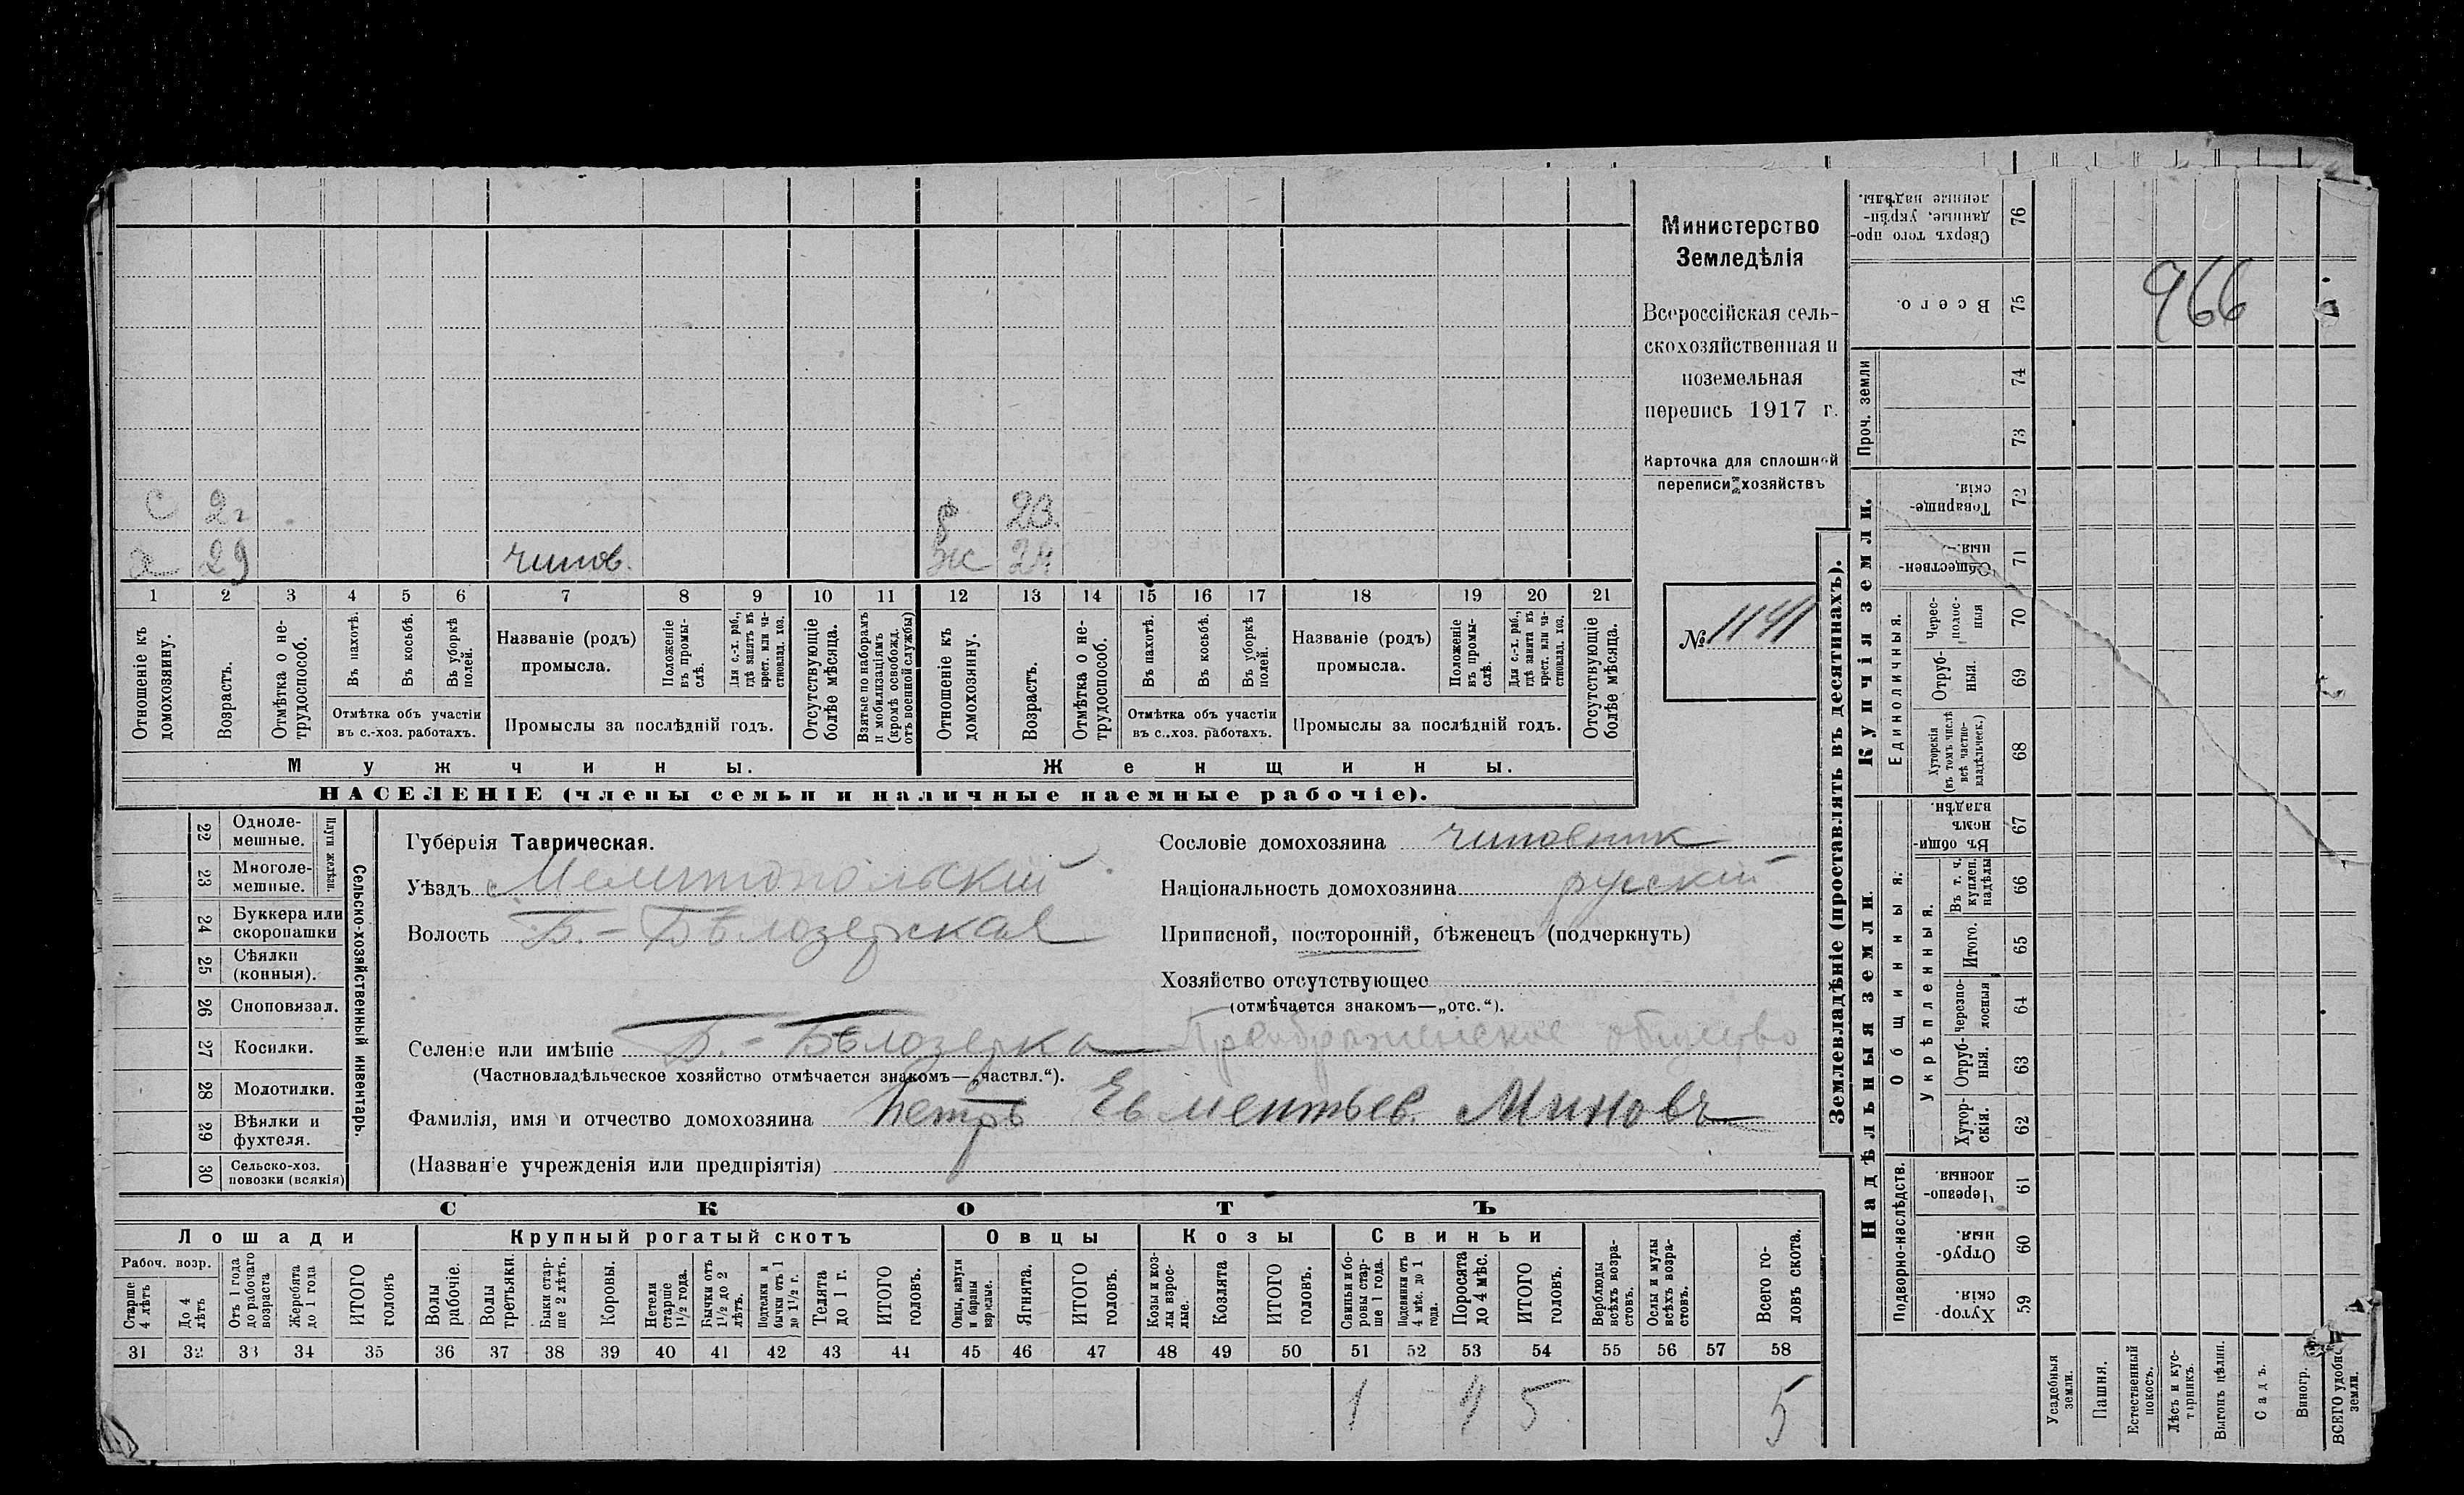 Министерство
Земледѣлія
Всероссійская сель-
скохозяйственная и
поземельная
перепись 1917 г.
Карточка для сплошной
переписи хозяйствъ
№ 1141
966
с 2 г 23.
а 29 чинов. ж 24
1 2 3 4 5 6 7 8 9 10 11 12 13 14 15 16 17 18 19 20 21
Отношеніе къ домохозяину.
Возрастъ.
Отмѣтка о не-трудоспособ.
Въ пахотѣ.
Въ косьбѣ.
Въ уборкѣ полей.
Отмѣтка объ участіи
въ с.-хоз. работахъ.
Названіе (родъ)
промысла.
Положеніе въ промы-слѣ.
Для с.-х. раб., гдѣ занятъ въ крест. или ча-стновлад. хоз.
Промыслы за послѣдній годъ.
Отсутствующіе болѣе мѣсяца.
Взятые по наборамъ и мобилизаціямъ (кромѣ освобожд. отъ военной службы)
Отношеніе къ домохозяину.
Возрастъ.
Отмѣтка о не-трудоспособ.
Въ пахотѣ.
Въ косьбѣ.
Въ уборкѣ полей.
Отмѣтка объ участіи
въ с..хоз. работахъ.
Названіе (родъ)
промысла.
Положеніе въ промы-слѣ.
Для с.-х. раб., гдѣ занятъ въ крест. или ча-стновлад. хоз.
Промыслы за послѣдній годъ.
Отсутствующіе болѣе мѣсяца.
Мужчины. Женщины.
НАСЕЛЕНІЕ (члены семьи и наличные наемные рабочіе).
22 Одноле-мешные.
23 Многоле-мешные.
Плуги желѣзн.
24 Буккера или скоропашки
25 Сѣялки (конныя).
26 Сноповязал.
27 Косилки.
28 Молотилки.
29 Вѣялки и фухтеля.
30 Сельско-хоз. повозки (всякія)
Сельско-хозяйственный инвентарь.
Губернія Таврическая.
Уѣздъ Мелитопольскій
Волость Б.-Бѣлозерская
Сословіе домохозяина чиновник
Національность домохозяина русскій
Приписной, посторонній, бѣженецъ (подчеркнуть)
Хозяйство отсутствующее
(отмѣчается знакомъ—„отс.“).
Селеніе или имѣніе Б.-Бѣлозерка Преображенское общество
(Частновладѣльческое хозяйство отмѣчается знакомъ—„частвл.“).
Фамилія, имя и отчество домохозяина Петръ Евментьев. Миновъ
(Названіе учрежденія или предпріятія)
СКОТЪ
Лошади Крупный рогатый скотъ Овцы Козы Свиньи
Рабоч. возр.
Старше 4 лѣтъ
До 4 лѣтъ
Отъ 1 года до рабочаго возраста
Жеребята до 1 года
ИТОГО головъ
Волы рабочіе.
Волы третьяки.
Быки стар-ше 2 лѣтъ.
Коровы.
Нетели старше 1½ года.
Бычки отъ 1½ до 2 лѣтъ.
Подтелки и бычки отъ 1 до 1½ г.
Телята до 1 г.
ИТОГО головъ.
Овцы, валухи и бараны взрослые.
Ягнята.
ИТОГО головъ.
Козы и коз-лы взрос-лые.
Козлята
ИТОГО головъ.
Свиньи и бо-ровы стар-ше 1 года.
Подсвинки отъ 4 мѣс. до 1 года.
Поросята до 4 мѣс.
ИТОГО головъ.
Верблюды всѣхъ возра-стовъ.
Ослы и мулы всѣхъ возра-стовъ.
Всего го-ловъ скота.
31 32 33 34 35 36 37 38 39 40 41 42 43 44 45 46 47 48 49 50 51 52 53 54 55 56 57 58
1 4 5 5
Землевладѣніе (проставлять въ десятинахъ).
Купчія земли.
Надѣльныя земли.
Сверхъ того про-данные, укрѣп-ленные надѣлы. 76
Всего. 75
Проч. земли 74
73
Товарище-скія. 72
Обществен-ныя. 71
Единоличныя.
Черес-полос-ныя 70
Отруб-ныя. 69
Хуторскія (въ томъ числѣ всѣ частно-владѣльческ.) 68
Общинныя.
Въ общин-номъ владѣн. 67
Укрѣпленныя.
Въ т. ч. куплен. надѣлы 66
Итого. 65
Черезпо-лосныя 64
Отруб-ныя. 63
Хутор-скія. 62
Подворно-наслѣдств.
Черезпо-лосныя 61
Отруб-ныя. 60
Хутор-скія. 59
Усадебныя земли.
Пашня.
Естественный покосъ.
Лѣсъ и кус-тарникъ.
Выгонъ цѣлин.
Садъ.
Виногр.
ВСЕГО удобн. земли.